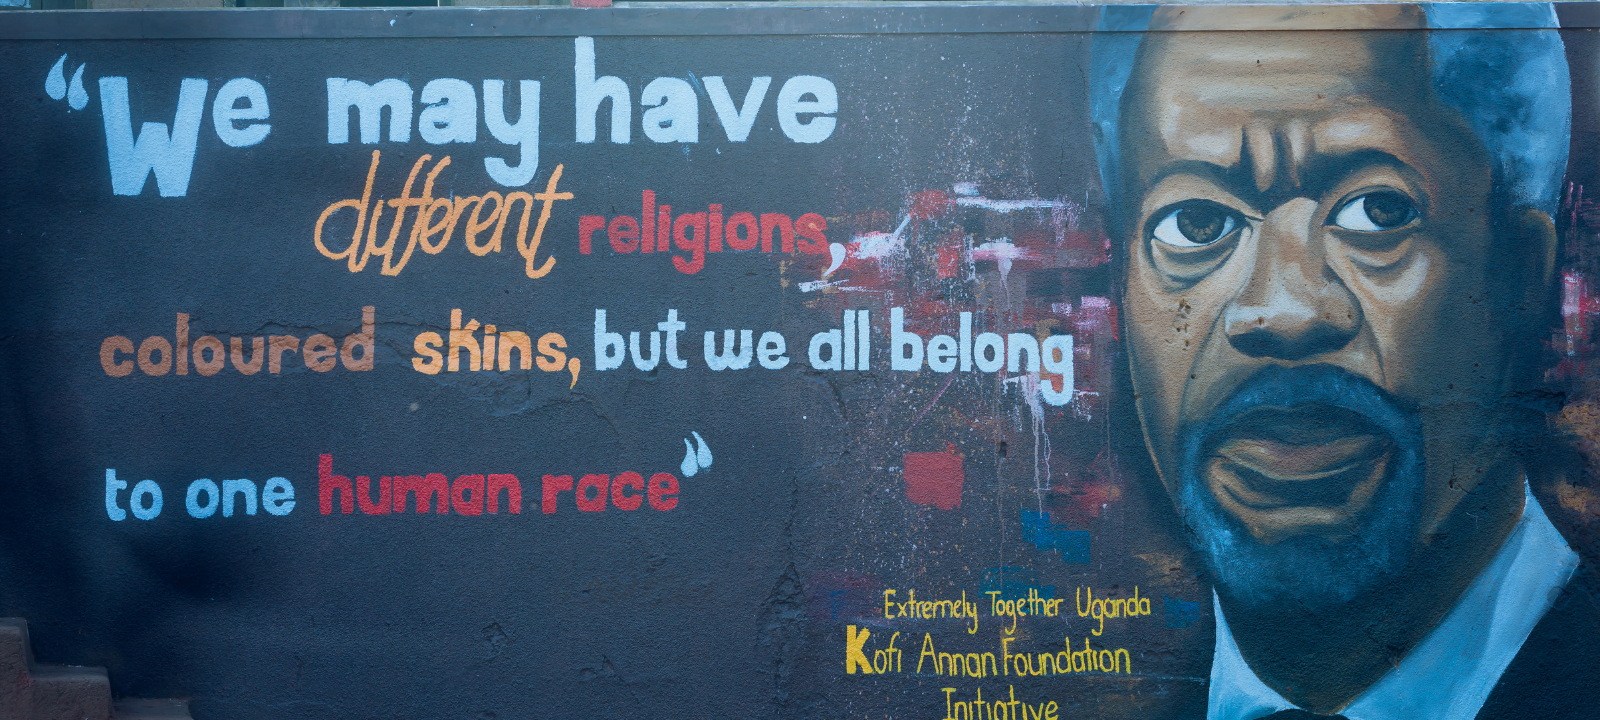 “We may have
different religions,
coloured skins, but we all belong
to one human race”
Extremely Together Uganda
Kofi Annan Foundation
Initiative